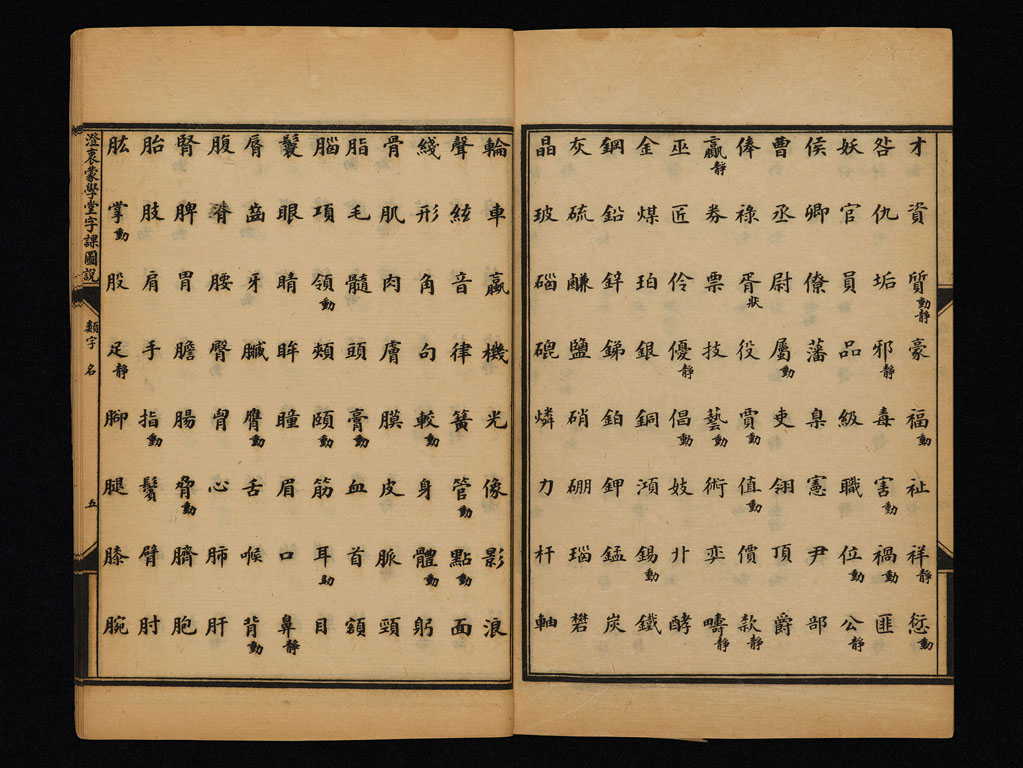 才資質動靜豪福動祉祥靜愆動
咎仇垢邪靜毒害動禍動匪
妖官員品級職位動公靜
侯卿僚藩臬憲尹部
曹丞尉屬動吏翎頂爵
俸祿胥狀役賈動值動價款靜
贏靜券票技藝動術弈疇靜
巫匠伶優靜倡動妓卝酵
金煤珀銀銅澒錫動鐵
鋼鉛鋅銻鉑鉀錳炭
灰硫鹻鹽硝硼瑙礬
晶玻碯磇燐力杆軸
輪車蠃機光像影浪
聲絃音律簧管動點動面
綫形角句較動身體動躬
骨肌肉膚膜皮脈頸
脂毛髓頭膏動血首額
腦項領動頰頤動筋耳助目
鬟眼睛眸瞳眉口鼻靜
脣齒牙臟膺動舌喉背動
腹膌腰臀胷心肺肝
腎脾胃膽腸脅動臍胞
胎肢肩手指動鬢臂肘
肱掌動股足靜腳腿膝腕
澄衷蒙學堂字課圖說
類字 名
五